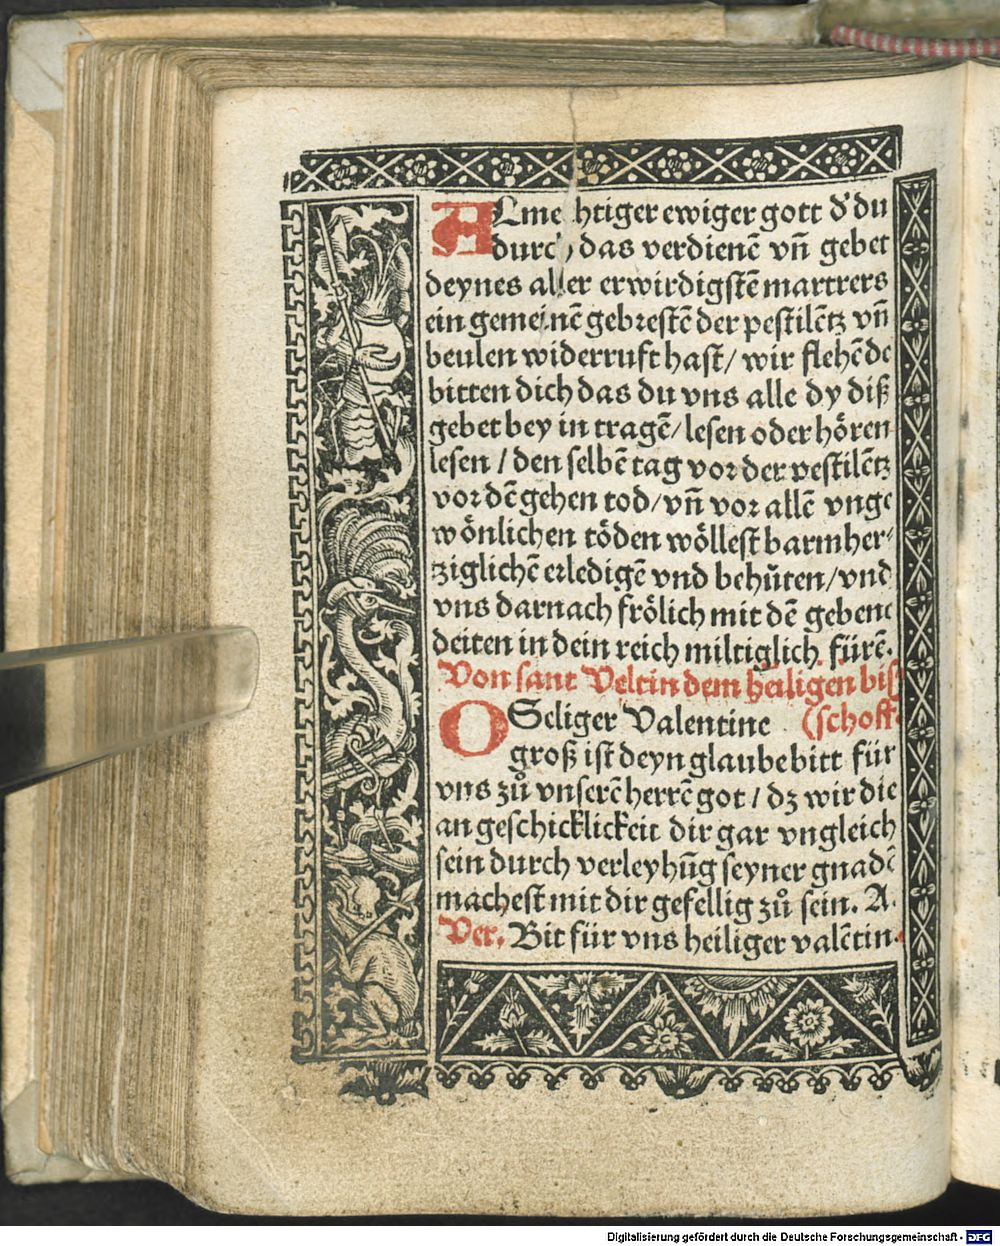 ALmechtiger ewiger gott d' du
durch das verdienẽ vñ gebet
deynes aller erwirdigstẽ martrers
ein gemeinẽ gebꝛestẽ der pestilẽtz vñ
beulen widerruft hast/ wir flehẽ de
bitten dich das du vns alle dy diß
gebet bey in tragẽ/ lesen oder hören
lesen / den selbẽ tag voꝛ der pestilẽtz
voꝛ dẽ gehen tod/ vñ voꝛ allẽ vnge
wönlichen töden wöllest barmher-
ziglichẽ erledigẽ vnd behůten/ vnd
vns darnach frölich mit dẽ gebene
deiten in dein reich miltiglich fürẽ.
Von sant Veltin dem heiligen bis
O Seliger Valentine (schoff.
groß ist deyn glaube bitt für
vns zů vnserẽ herrẽ got / dz wir die
an geschicklickeit dir gar vngleich
sein durch verleyhũg seyner gnadẽ
machest mit dir gefellig zů sein. A.
Ver. Bit für vns heiliger valẽtin.
Digitalisierung gefördert durch die Deutsche Forschungsgemeinschaft - DFG